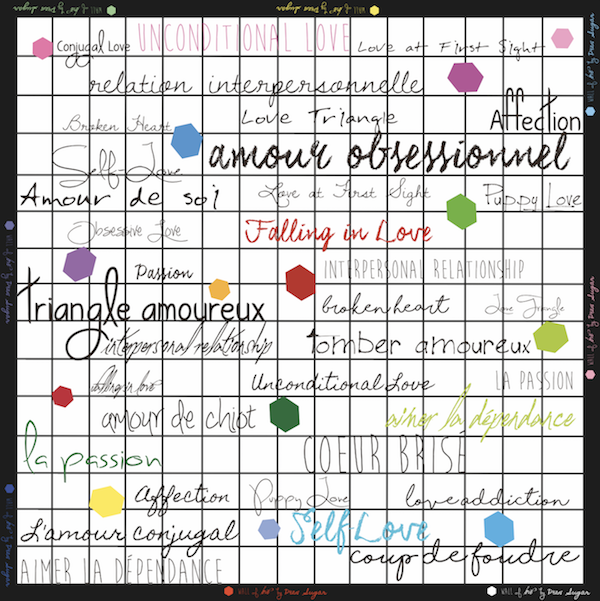 WALL of
by Dear Sugar
WALL of
by Dear Sugar
Conjugal Love
UNCONDITIONAL LOVE
Love at First Sight
relation interpersonnelle
Love Triangle
Affection
Broken Heart
amour obsessionnel
Self-Love
Amour de soi
Love at First Sight
Puppy Love
Obsessive Love
Falling in Love
Passion
INTERPERSONAL RELATIONSHIP
triangle amoureux
broken heart
Love Triangle
interpersonal relationship
tomber amoureux
falling in love
Unconditional Love
LA PASSION
amour de chiot
aimer la dépendance
la passion
COEUR BRISÉ
Affection
Puppy Love
love addiction
L'amour conjugal
Self-Love
coup de foudre
AIMER LA DÉPENDANCE
WALL of
by Dear Sugar
WALL of
by Dear Sugar